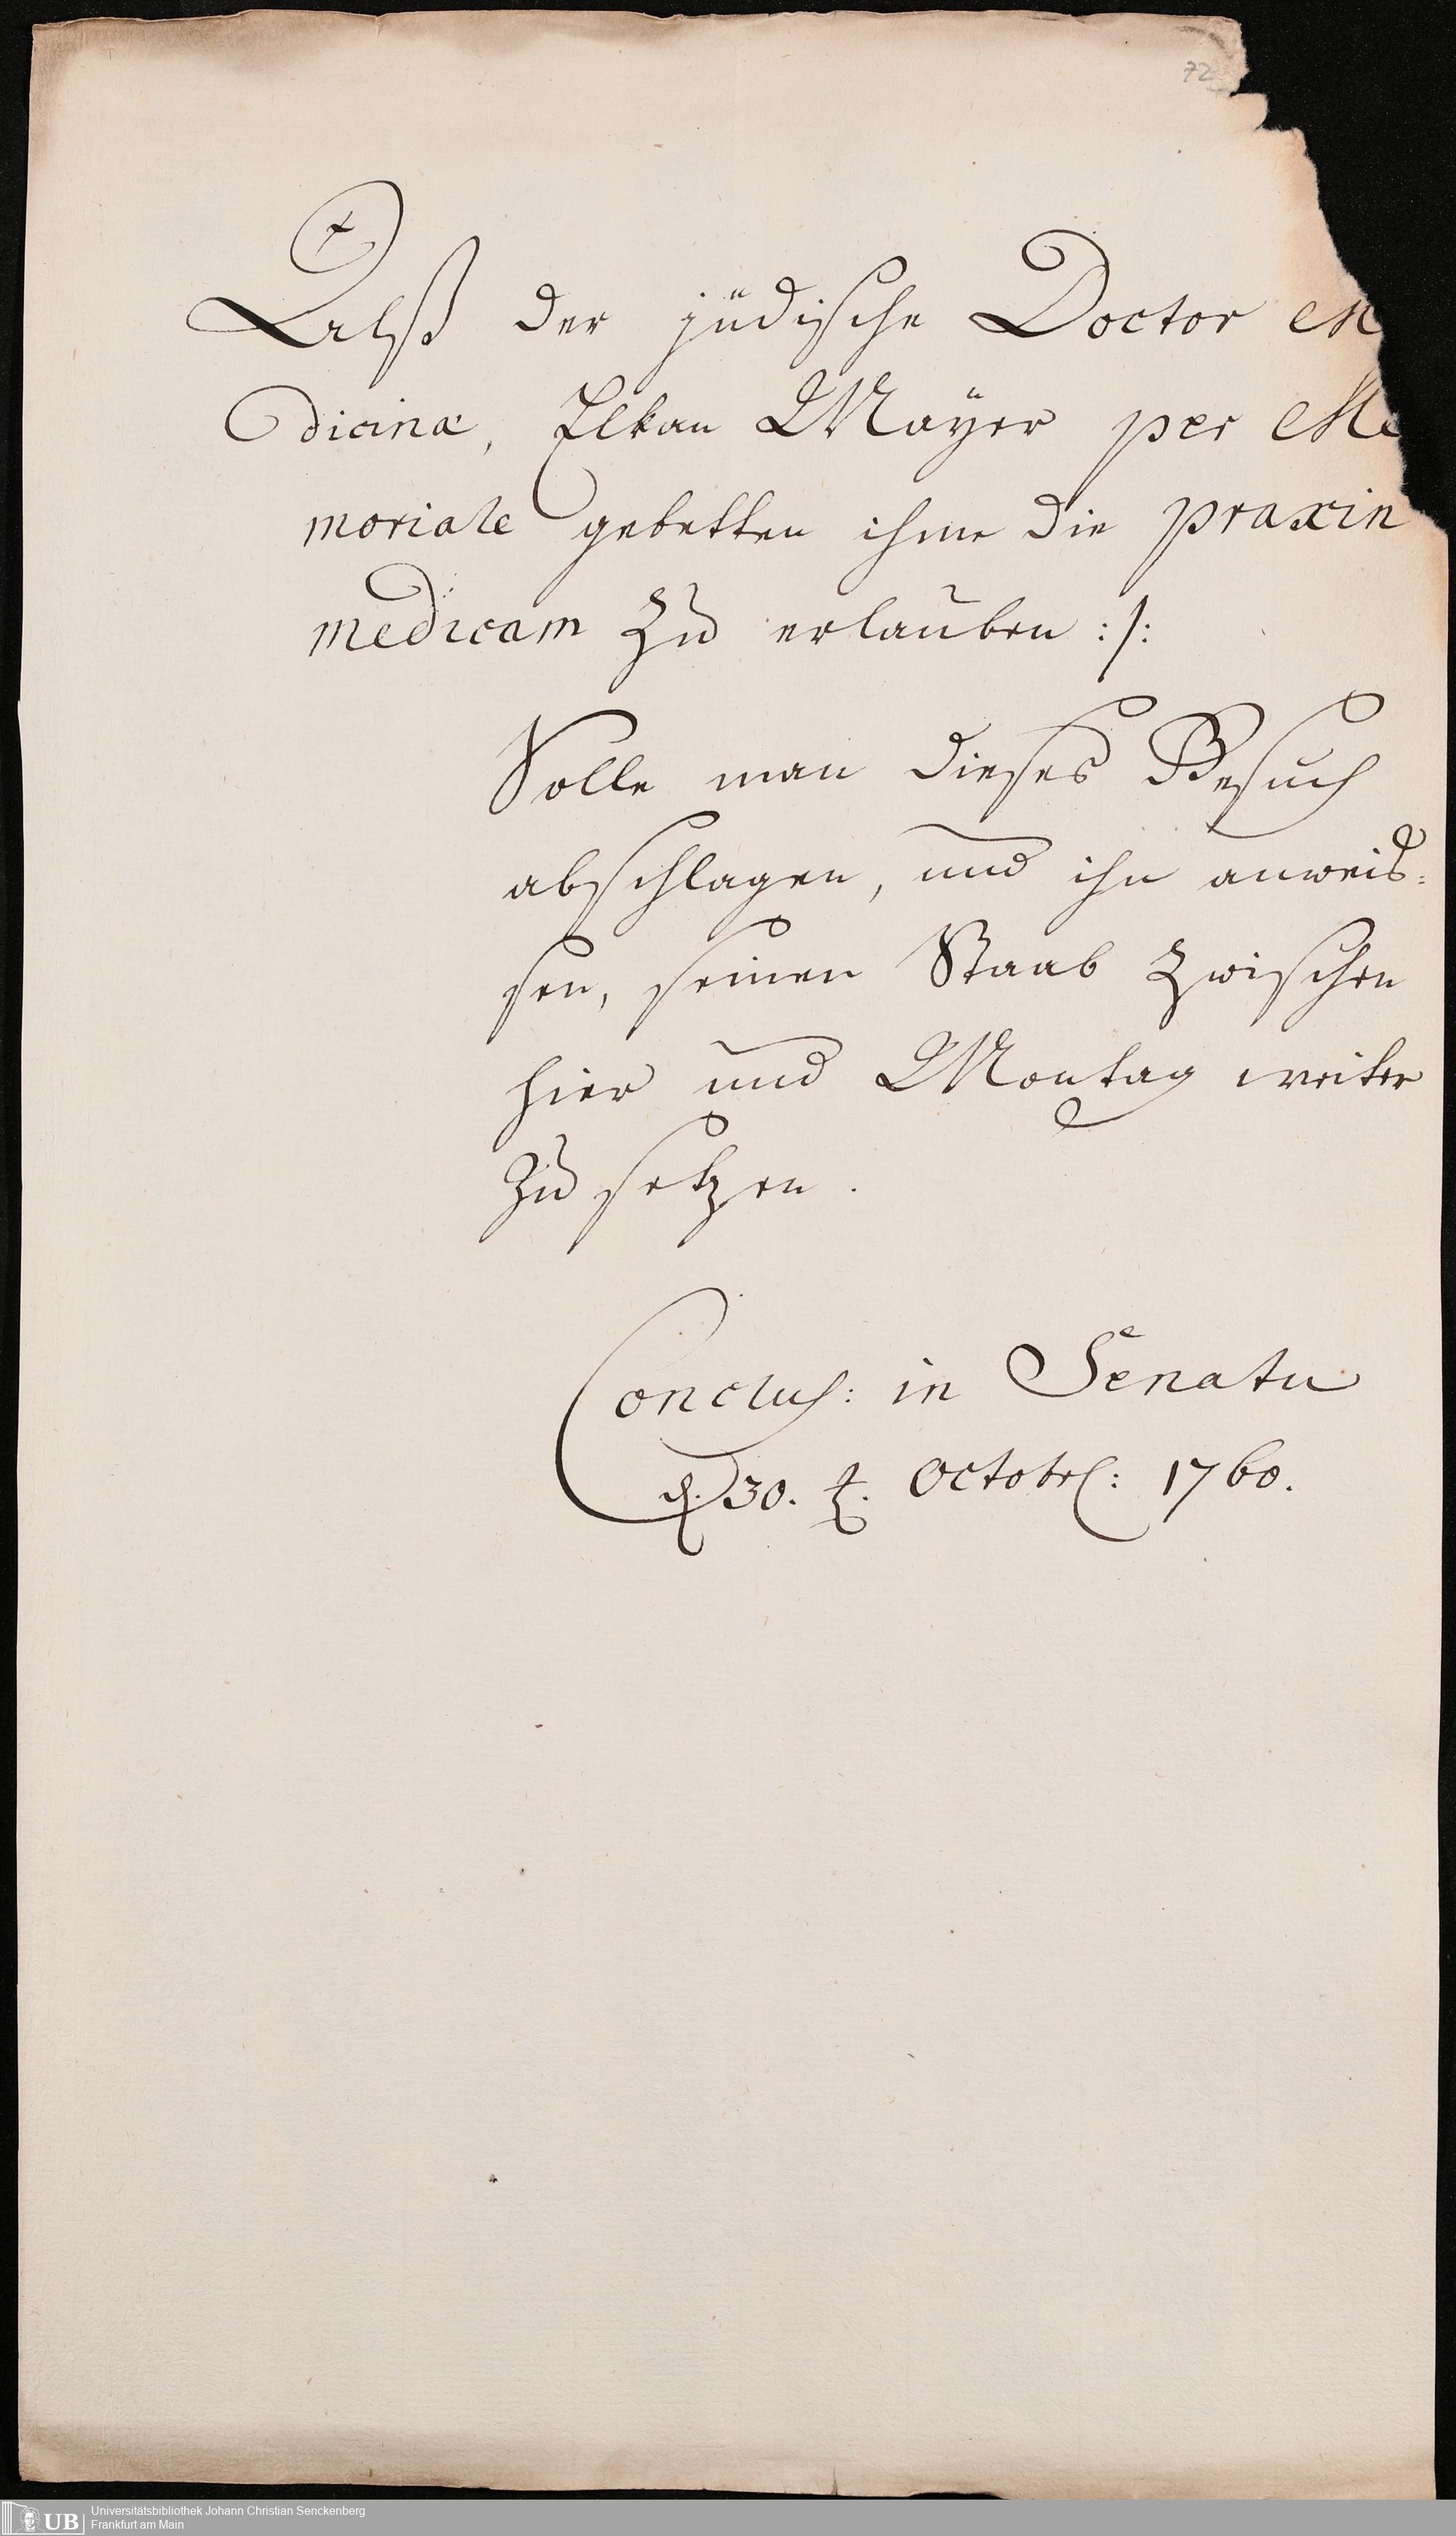 72
Alß der jüdische Doctor M
dicinæ, Elkan Mayer per Me
moriale gebetten ihme die praxin
medicam zu erlauben :/:
Solle man dieses Besuch
abschlagen, und ihn anweis:
sen, seinen Staab zwischen
hier und Montag weiter
zu setzen.
Conclus: in Senatu
d. 30. t. Octobr: 1760.
UB
Universitätsbibliothek Johann Christian Senckenberg
Frankfurt am Main